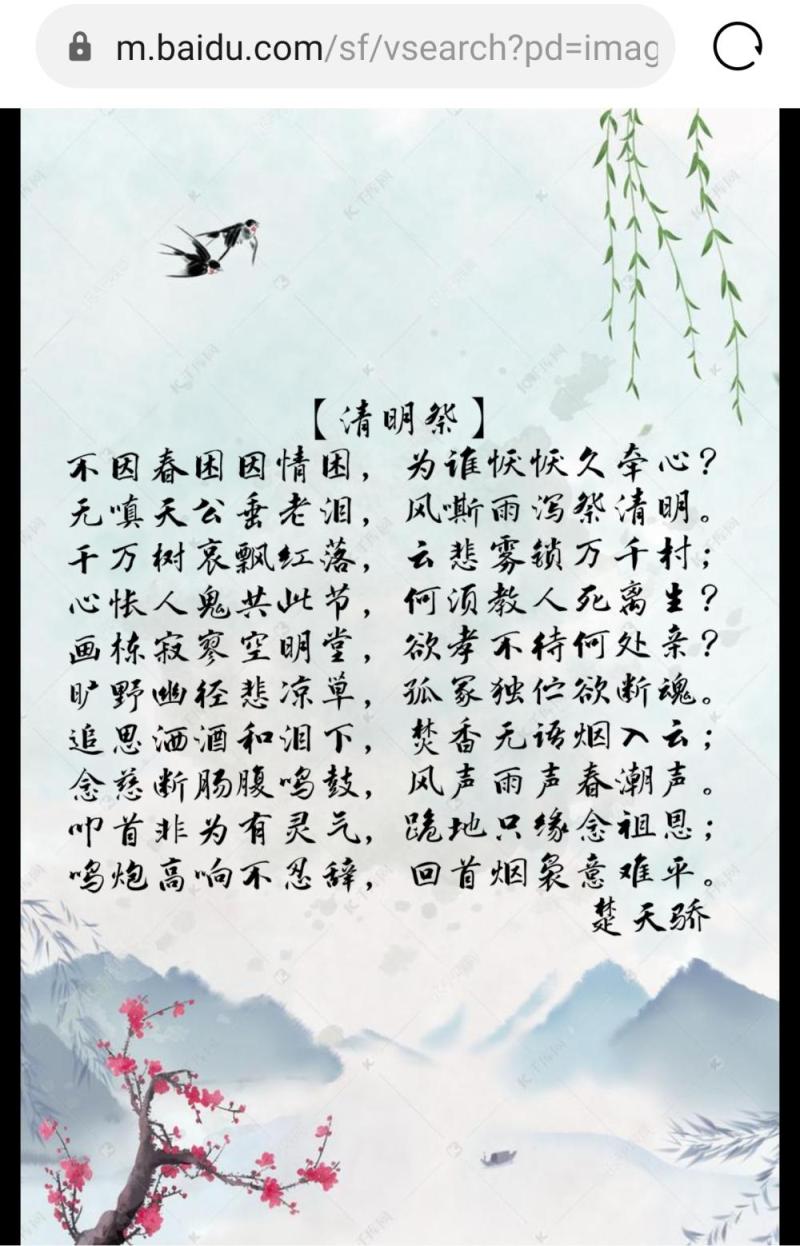 m.baidu.com/sf/vsearch?pd=imag
【清明祭】
不因春困因情困，为谁恹恹久牵心？
无嗔天公垂老泪，风嘶雨泻祭清明。
千万树哀飘红落，云悲雾锁万千村；
心怅人鬼共此节，何须教人死离生？
画栋寂寥空明堂，欲孝不待何处亲？
旷野幽径悲凉草，孤冢独伫欲断魂。
追思洒酒和泪下，焚香无语烟入云；
念慈断肠腹鸣鼓，风声雨声春潮声。
叩首非为有灵气，跪地只缘念祖恩；
鸣炮高响不忍辞，回首烟袅意难平。
楚天骄